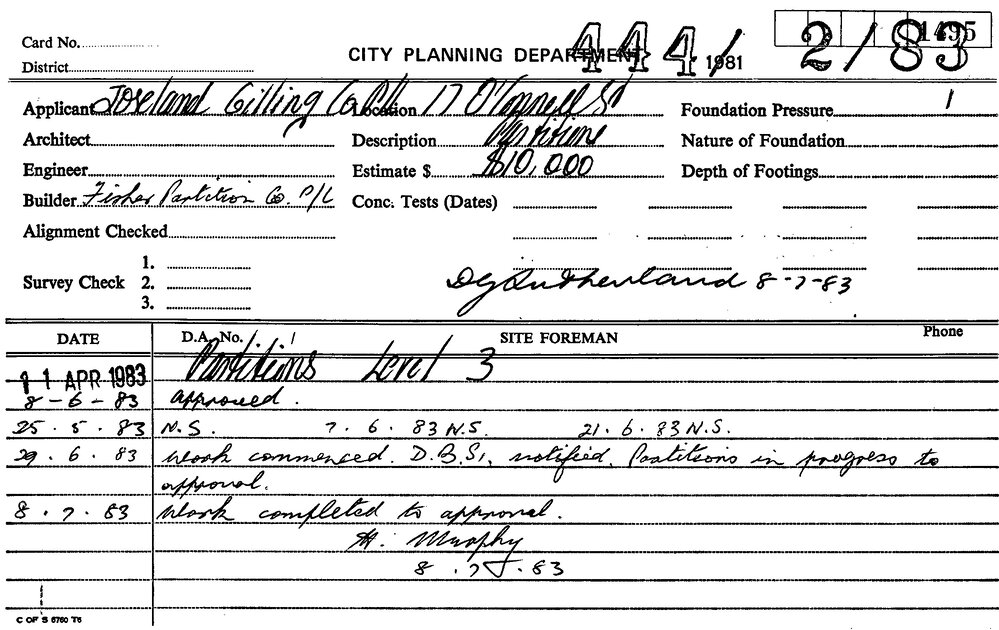 Card No. CITY PLANNING DEPARTMENT 444/ 1981 2/83 1495
District
Applicant Joseland Gilling Co P.L. Location 17 O'Connell St Foundation Pressure
Architect Description Partitions Nature of Foundation
Engineer Estimate $ $10,000 Depth of Footings
Builder Fisher Partition Co. P/L Conc. Tests (Dates)
Alignment Checked
Survey Check 1.
2. DG Sutherland 8-7-83
3.
DATE D.A. No. SITE FOREMAN Phone
11 APR 1983 Partitions Level 3
8-6-83 approved.
25.5.83 N.S. 7.6.83 N.S. 21.6.83 N.S.
29.6.83 Work commenced. D.B.S., notified. Partitions in progress to
approval.
8.7.83 Work completed to approval.
H. Murphy
8.7.83
C OF S 6760 T6